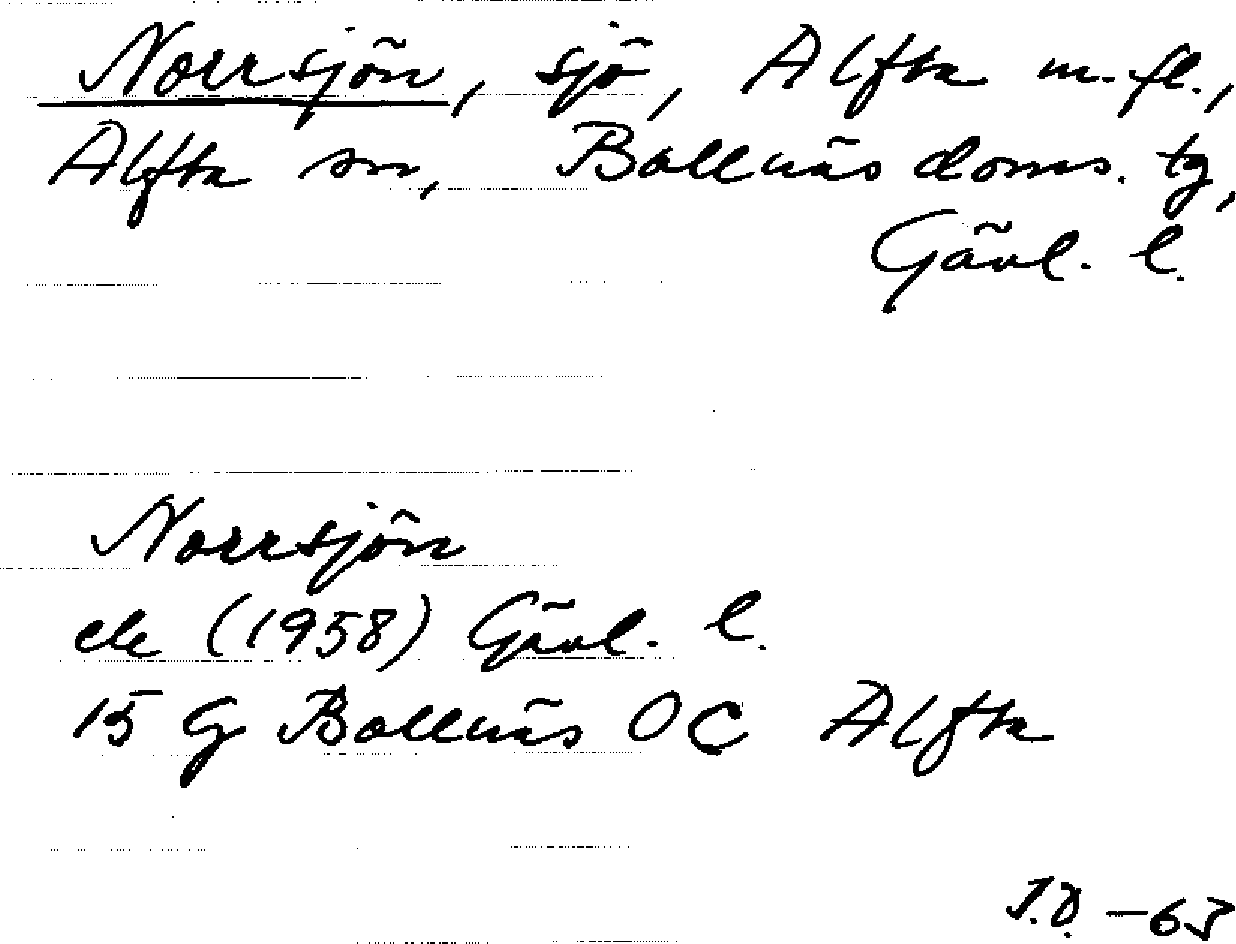 Norrsjön, sjö, Alfta m. fl.,
Alfta sn, Bollnäs doms. tg,
Gävl. l.
Norrsjön
ek (1958) Gävl. l.
15 G Bollnäs OC Alfta
-63